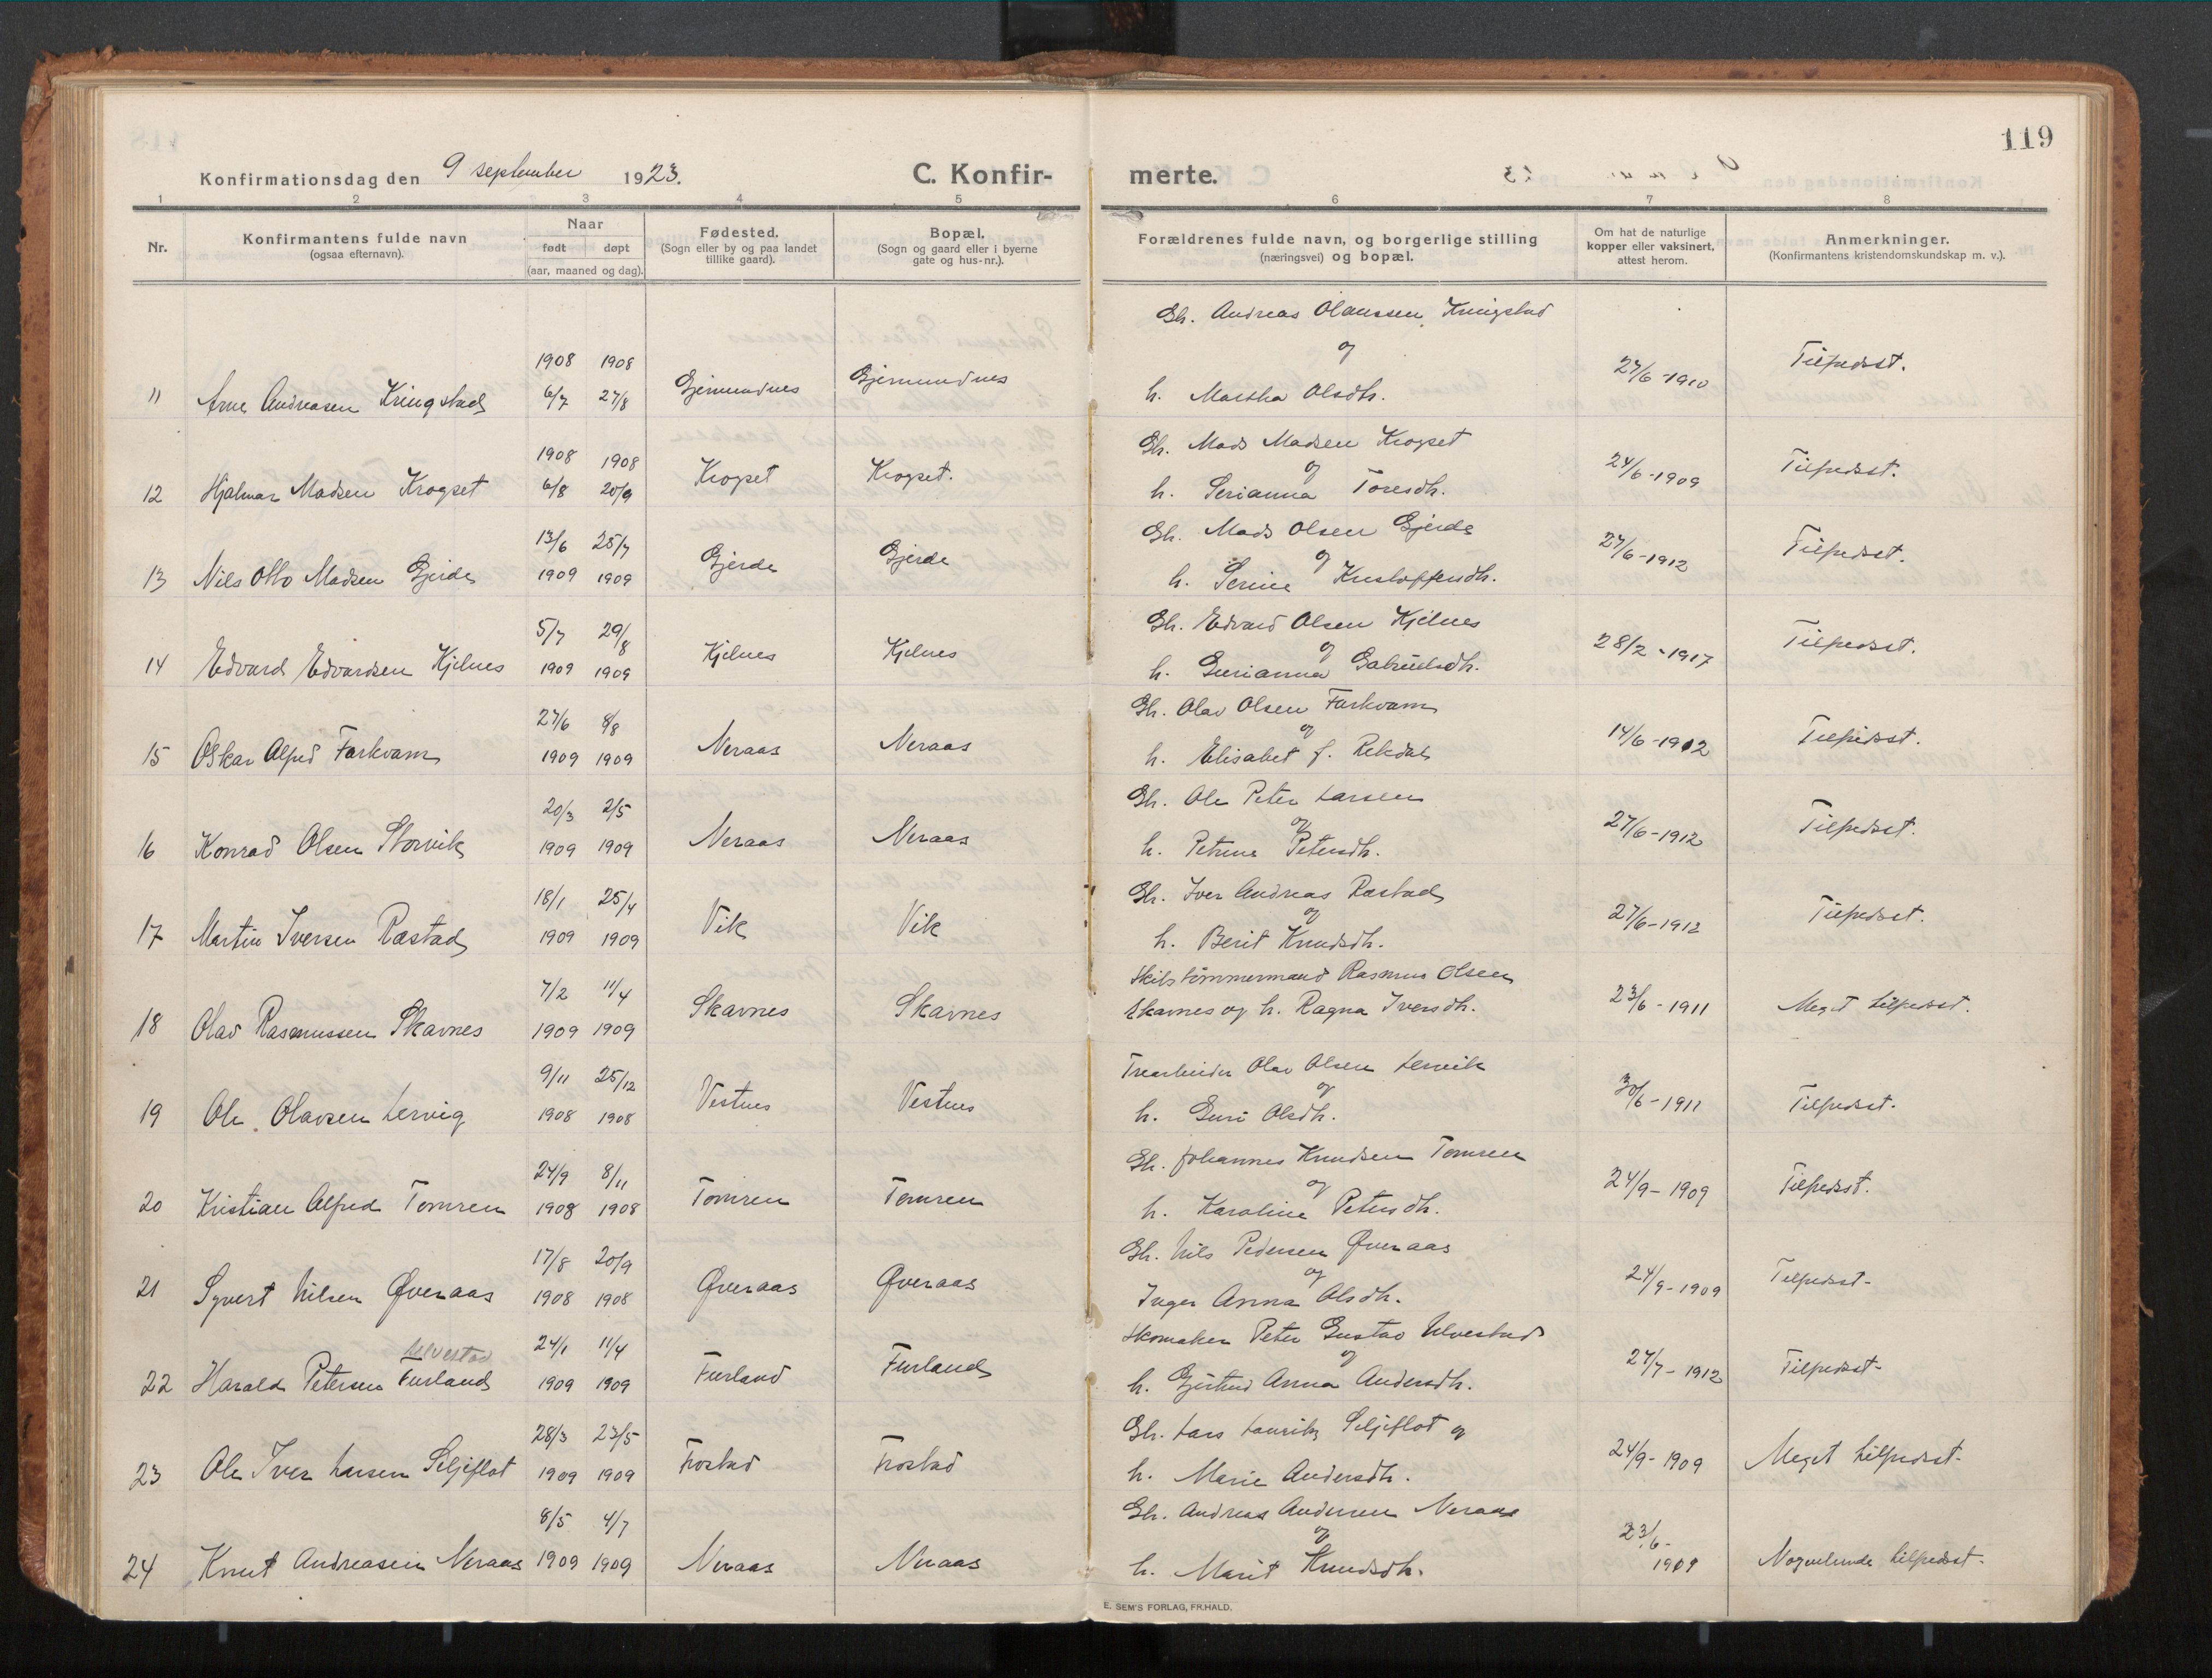 119
Konfirmationsdag den 9 september 1923. C. Konfir- merte.
1 2 3 4 5 6 7 8
Nr.
Konfirmantens fulde navn
(ogsaa efternavn).
Naar
født døpt
(aar, maaned og dag).
Fødested.
(Sogn eller by og paa landet
tillike gaard).
Bopæl.
(Sogn og gaard eller i byerne
gate og hus-nr.).
Forældrenes fulde navn, og borgerlige stilling
(næringsvei) og bopæl.
Om hat de naturlige
kopper eller vaksinert,
attest herom.
Anmerkninger.
(Konfirmantens kristendomskundskap m. v.).
Gb. Andreas Olaussen Kringstad
1908 1908 og
11 Arne Andreasen Kringstad 6/7 27/8 Gjermundnes Gjermundnes h. Martha Olsdtr. 27/6-1910 Tilfredsst.
1908 1908 Gb. Mads Madsen Krogset
og
12 Hjalmar Madsen Krogset 6/8 20/9 Krogset Krogset. h. Serianna Toresdtr. 24/6-1909 Tilfredsst.
13/6 25/7 Gb. Mads Olsen Gjerde
og
13 Nils Otto Madsen Gjerde 1909 1909 Gjerde Gjerde h. Serine Kristoffersdtr. 27/6-1912 Tilfredsst.
5/7 29/8 Gb. Edvard Olsen Kjelnes
og
14 Edvard Edvardsen Kjelnes 1909 1909 Kjelnes Kjelnes h. Gurianna Gabrielsdtr. 28/2-1917 Tilfredsst.
27/6 8/8 Gb. Olav Olsen Farkvam
og
15 Oskar Alfred Farkvam 1909 1909 Neraas Neraas h. Elisabet f. Rekdal 14/6-1912 Tilfredsst.
20/3 2/5 Gb. Ole Peter Larsen
og
16 Konrad Olsen Storvik 1909 1909 Neraas Neraas h. Petrine Petersdtr. 27/6-1912 Tilfredsst.
18/1 25/4 Gb. Iver Andreas Rastad
og
17 Martin Iversen Rastad 1909 1909 Vik Vik h. Berit Knudsdtr. 27/6-1912 Tilfredsst.
7/2 11/4 Skibstømmermand Rasmus Olsen
18 Olav Rasmussen Skavnes 1909 1909 Skavnes Skavnes Skavnes og h. Ragna Iversdtr. 23/6-1911 Meget tilfredsst.
9/11 25/12 Træarbeider Olav Olsen Lervik
og
19 Ole Olavsen Lervig 1908 1908 Vestnes Vestnes h. Guri Olsdtr. 30/6-1911 Tilfredsst.
24/9 8/11 Gb. Johannes Knudsen Tomren
og
20 Kristian Alfred Tomren 1908 1908 Tomren Tomren h. Karoline Petersdtr. 24/9-1909 Tilfredsst.
17/8 20/9 Gb. Nils Pedersen Øveraas
og
21 Syvert Nilsen Øveraas 1908 1908 Øveraas Øveraas Inger Anna Olsdtr. 24/9-1909 Tilfredsst-
Ulvestad 24/1 11/4 Skomaker Peter Gustav Ulvestad
og
22 Harald Petersen Furland 1909 1909 Furland Furland h. Gjertrud Anna Andersdtr. 27/7-1912 Tilfredsst-
28/3 23/5 Gb. Lars Laurits Seljeflot og
23 Ole Iver Larsen Seljeflot 1909 1909 Frostad Frostad h. Marie Andersdtr. 24/9-1909 Meget tilfredsst-
8/5 4/7 Gb. Andreas Andersen Neraas
og
24 Knut Andreasen Neraas 1909 1909 Neraas Neraas h. Marit Knudsdtr. 23/6-1909 Nogenlunde tilfredsst-
E. SEM'S FORLAG, FR.HALD.